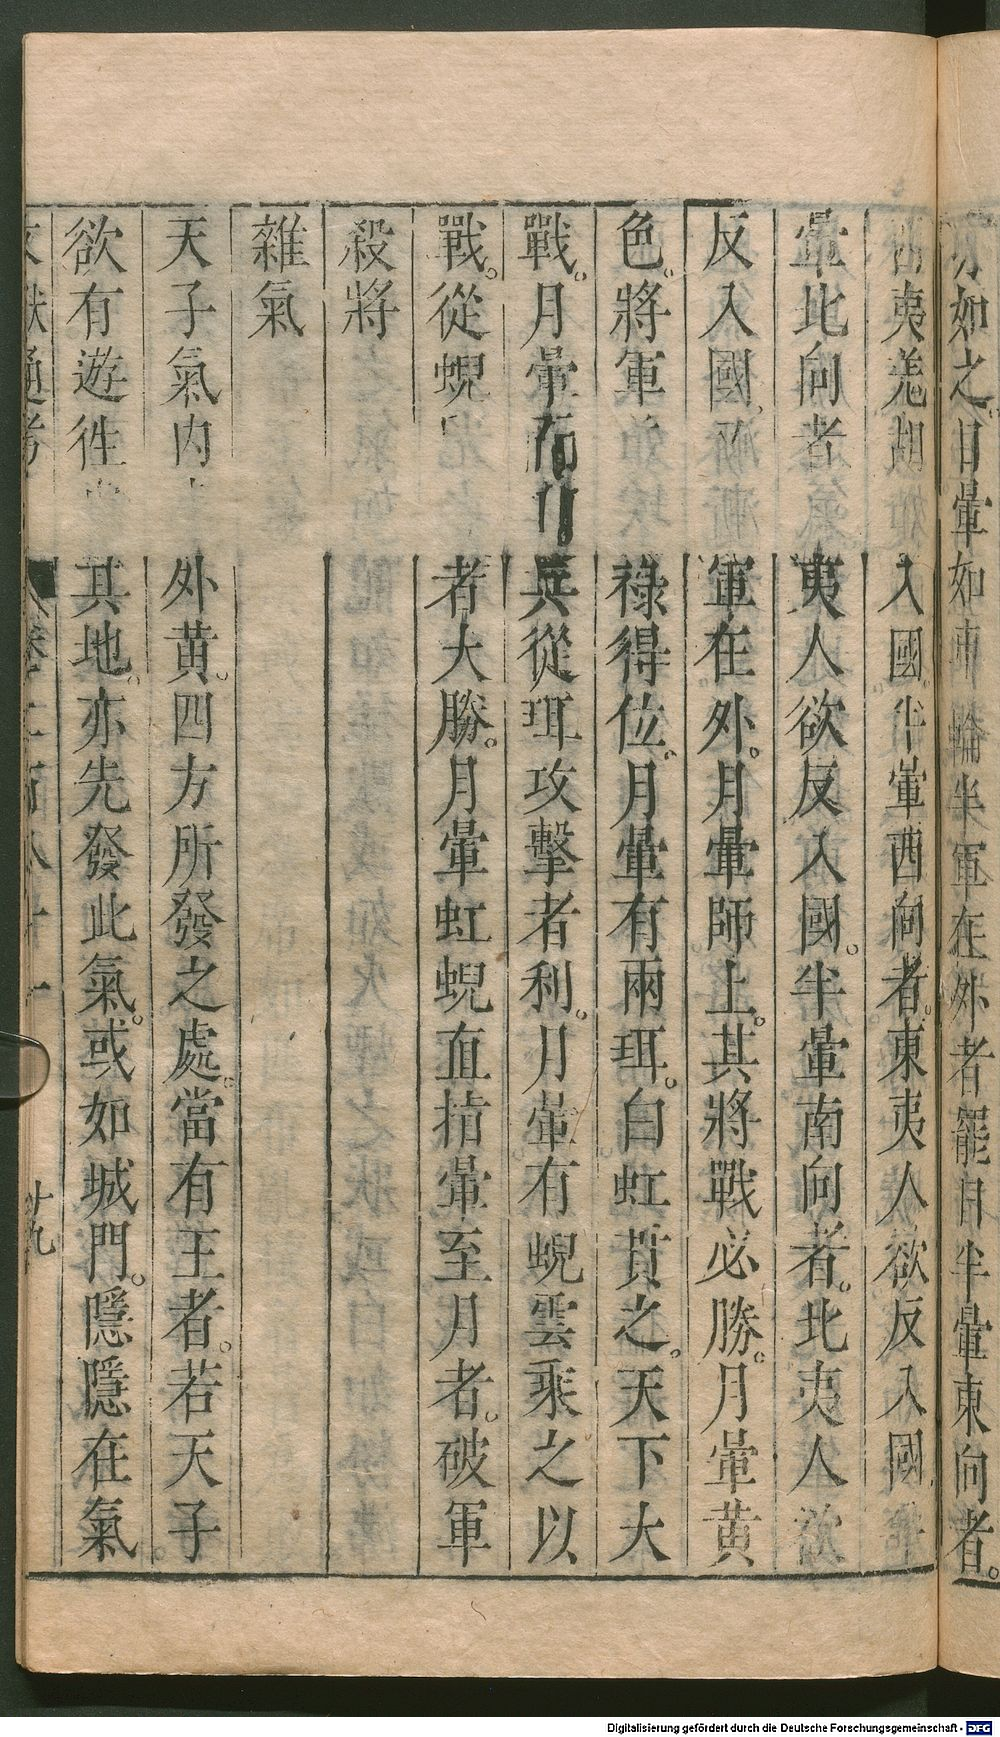 亦如之。日暈如車輪半軍在外者罷日半暈東向者。
西夷羗胡入國。半暈西向者。東夷人欲反入國半
暈北向者夷人欲反入國。半暈南向者。北夷人欲
反入國軍在外。月暈師上。其將戰必勝。月暈黃
色。將軍祿得位。月暈有兩珥。白虹貫之。天下大
戰。月暈而兵從珥攻擊者利。月暈有蜺雲乘之以
戰。從蜺者大勝。月暈虹蜺直指暈至月者。破軍
殺將
雜氣
天子氣内外黃。四方所發之處。當有王者。若天子
欲有遊徃其地。亦先發此氣。或如城門。隱隱在氣
文獻通考 卷二百八十一 廿九
Digitalisierung gefördert durch die Deutsche Forschungsgemeinschaft - DFG